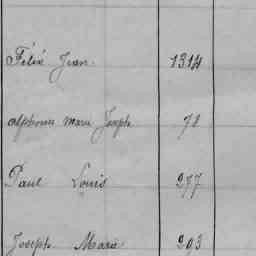 Félix Jean 1314
Alphonse Marie Joseph 70
Paul Louis 277
Joseph Marie 293